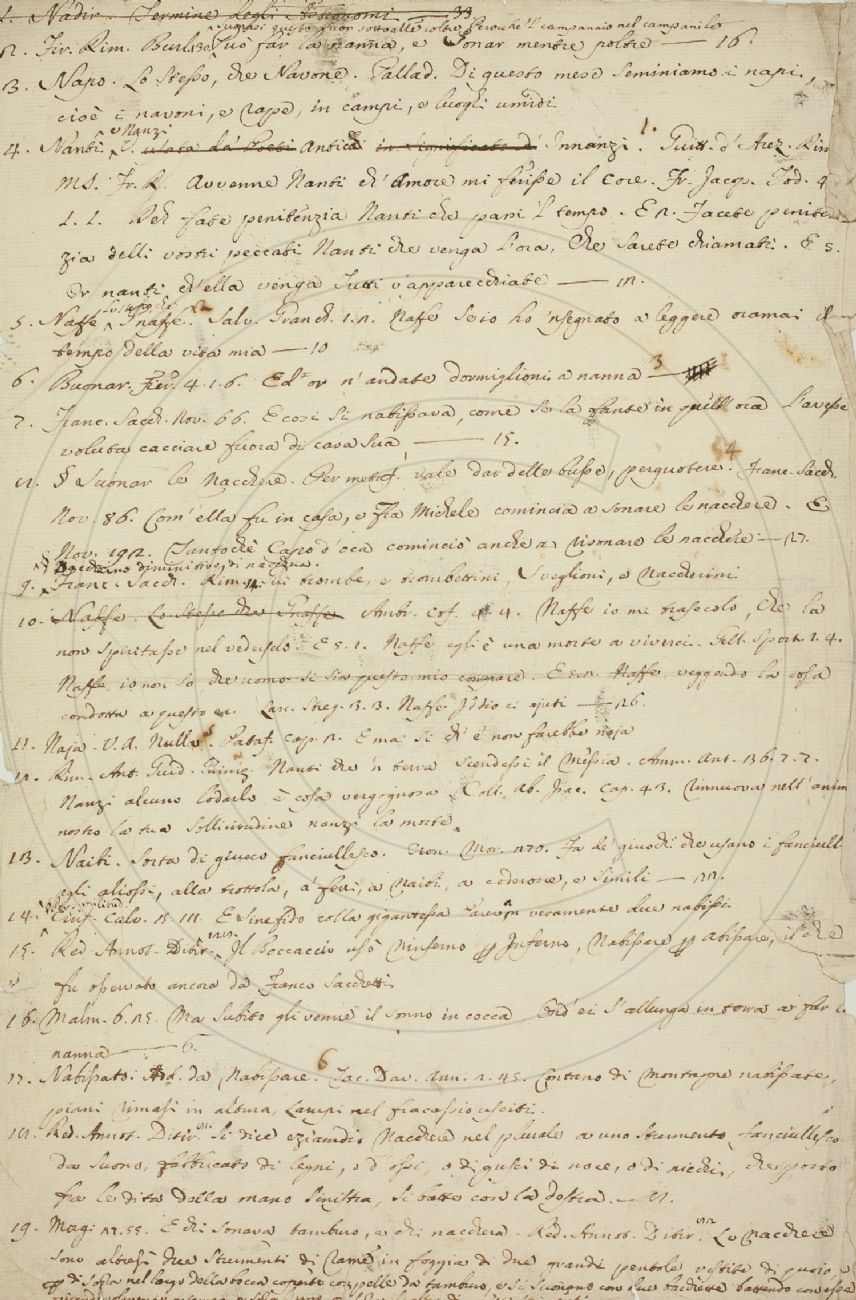 1. Nadir. Termine degli Astronomi — 33
2. Fir. Rim. Burl. 130. Può far la nanna, e Sonar mentre poltre — 16.
Perochè 'l campanaio nel campanile
3. Napo. Lo Stesso, che Navone. Pallad. Di questo mese seminiamo i napi,
cioè i navoni, e rape, in campi, e luoghi umidi
4. Nanti. e Nanzi usata da' Poeti antichi in significato d' Innanzi. Guitt. d' Arez. Rim
MS. Fr. R. Avvenne Nanti ch' Amore mi ferisse il core. Fr. Jacop. Tod. 4
1. 1. Per fate penitenzia Nanti che passi 'l tempo. E 2. Facete peniten
zia delli vostri peccati Nanti che venga l'ora, Che sarete chiamati. E 5.
Or nanti ch'ella venga Tutti v'apparecchiate — 12.
5. Naffe. Lo stesso che Gnaffe. Salv. Granch. 1. 2. Naffe se io ho 'nsegnato a leggere oramai il
tempo della vita mia — 10
6. Buonar. Fier. 4. 1. 6. Ed or n' andate dormiglioni a nanna — 3
7. Franc. Sacch. Nov. 66. E così si nabissava, come se la fante in quell' ora l'avesse
voluta cacciare fuora di casa sua — 15.
8. § Suonar le Nacchere. Per metaf. vale dar delle busse, perquotere. 4 Franc. Sacch.
Nov. 86. Com' ella fu in casa, e Fra Michele comincia a sonare le nacchere. E
Nov. 192. Tantochè Capo d'oca cominciò anche a risonare le nacchere — 17.
Naccherino diminutivo di nacchera.
9. Franc. Sacch. Rim. 14. Qui trombe, e trombettini, Sveglioni, e Naccherini
10. Naffe. Lo Stesso che Gnaffe. Ambr. Cof. 4. 4. Naffe io mi trasecolo, che la
non spiritasse nel vederselo. E 5. 1. Naffe egli è una morte a viverci. Gell. Sport. 1. 4.
Naffe, io non so che uomo si sia questo mio compare. E 5. 2. Naffe, veggendo la cosa
condotta a questo ec. Lasc. Streg. 3. 3. Naffe Iddio ci ajuti — 26.
11. Naja. V. A. Nulla. 5 Pataf. cap. 2. E mai si ch' è non farebbe naja
12. Rim. Ant. Guid. Guiniz. Nanti che 'n terra scendesse il Messia. Amm. Ant. 136. 7. 7.
Nanzi alcuno lodarlo è cosa vergognosa. Coll. Ab. Isac. Cap. 43. Rinnuova nell' anim
nostro la tua sollicitudine nanzi la morte.
13. Naibi. Sorta di giuoco fanciullesco. Cron. Mor. 270. Fa de' giuochi che usano i fanciulli
egli aliossi, alla trottola, a' ferri, a Naibi, a coderone, e simili — 22.
14. Ciriff. Calv. 3. 111. E Sinefido colla gigantessa Pareva'n veramente due nabissi.
15. Red. Annot. Ditir. Il Boccaccio usò Ninferno per Inferno, Nabissare per abissare, il che
fu osservato ancora da Franco Sacchetti
16. Malm. 6. 25. Ma subito gli venne il sonno in cocca Ond' ei s'allunga in terra a far l.
nanna — 6.
17. Nabissato. Add. da Nabissare. 6 Tac. Dav. Ann. 2. 45. Contano di montagne nabissate,
piani rimasi in altura, Lampi nel fracassio usciti.
18. Red. Annot. Ditir. Si dice eziandio Nacchere nel plurale a uno strumento fanciullesco
da suono, fabbricato di legni, o d' ossi, o di gusci di noce, o di nicchi, che posto
fra le dita della mano sinistra, si batte con la destra. — 21.
19. Magi 22. 55. E chi sonava tamburo, e chi nacchera. Red. Annot. Ditir. Le Nacchere
sono altresì due strumenti di rame in foggia di due grandi pentole vestite di cuoio, e
per di sopra nel largo della bocca coperte con pelle da tamburo, e si suonano con due bacchette battendo con esse